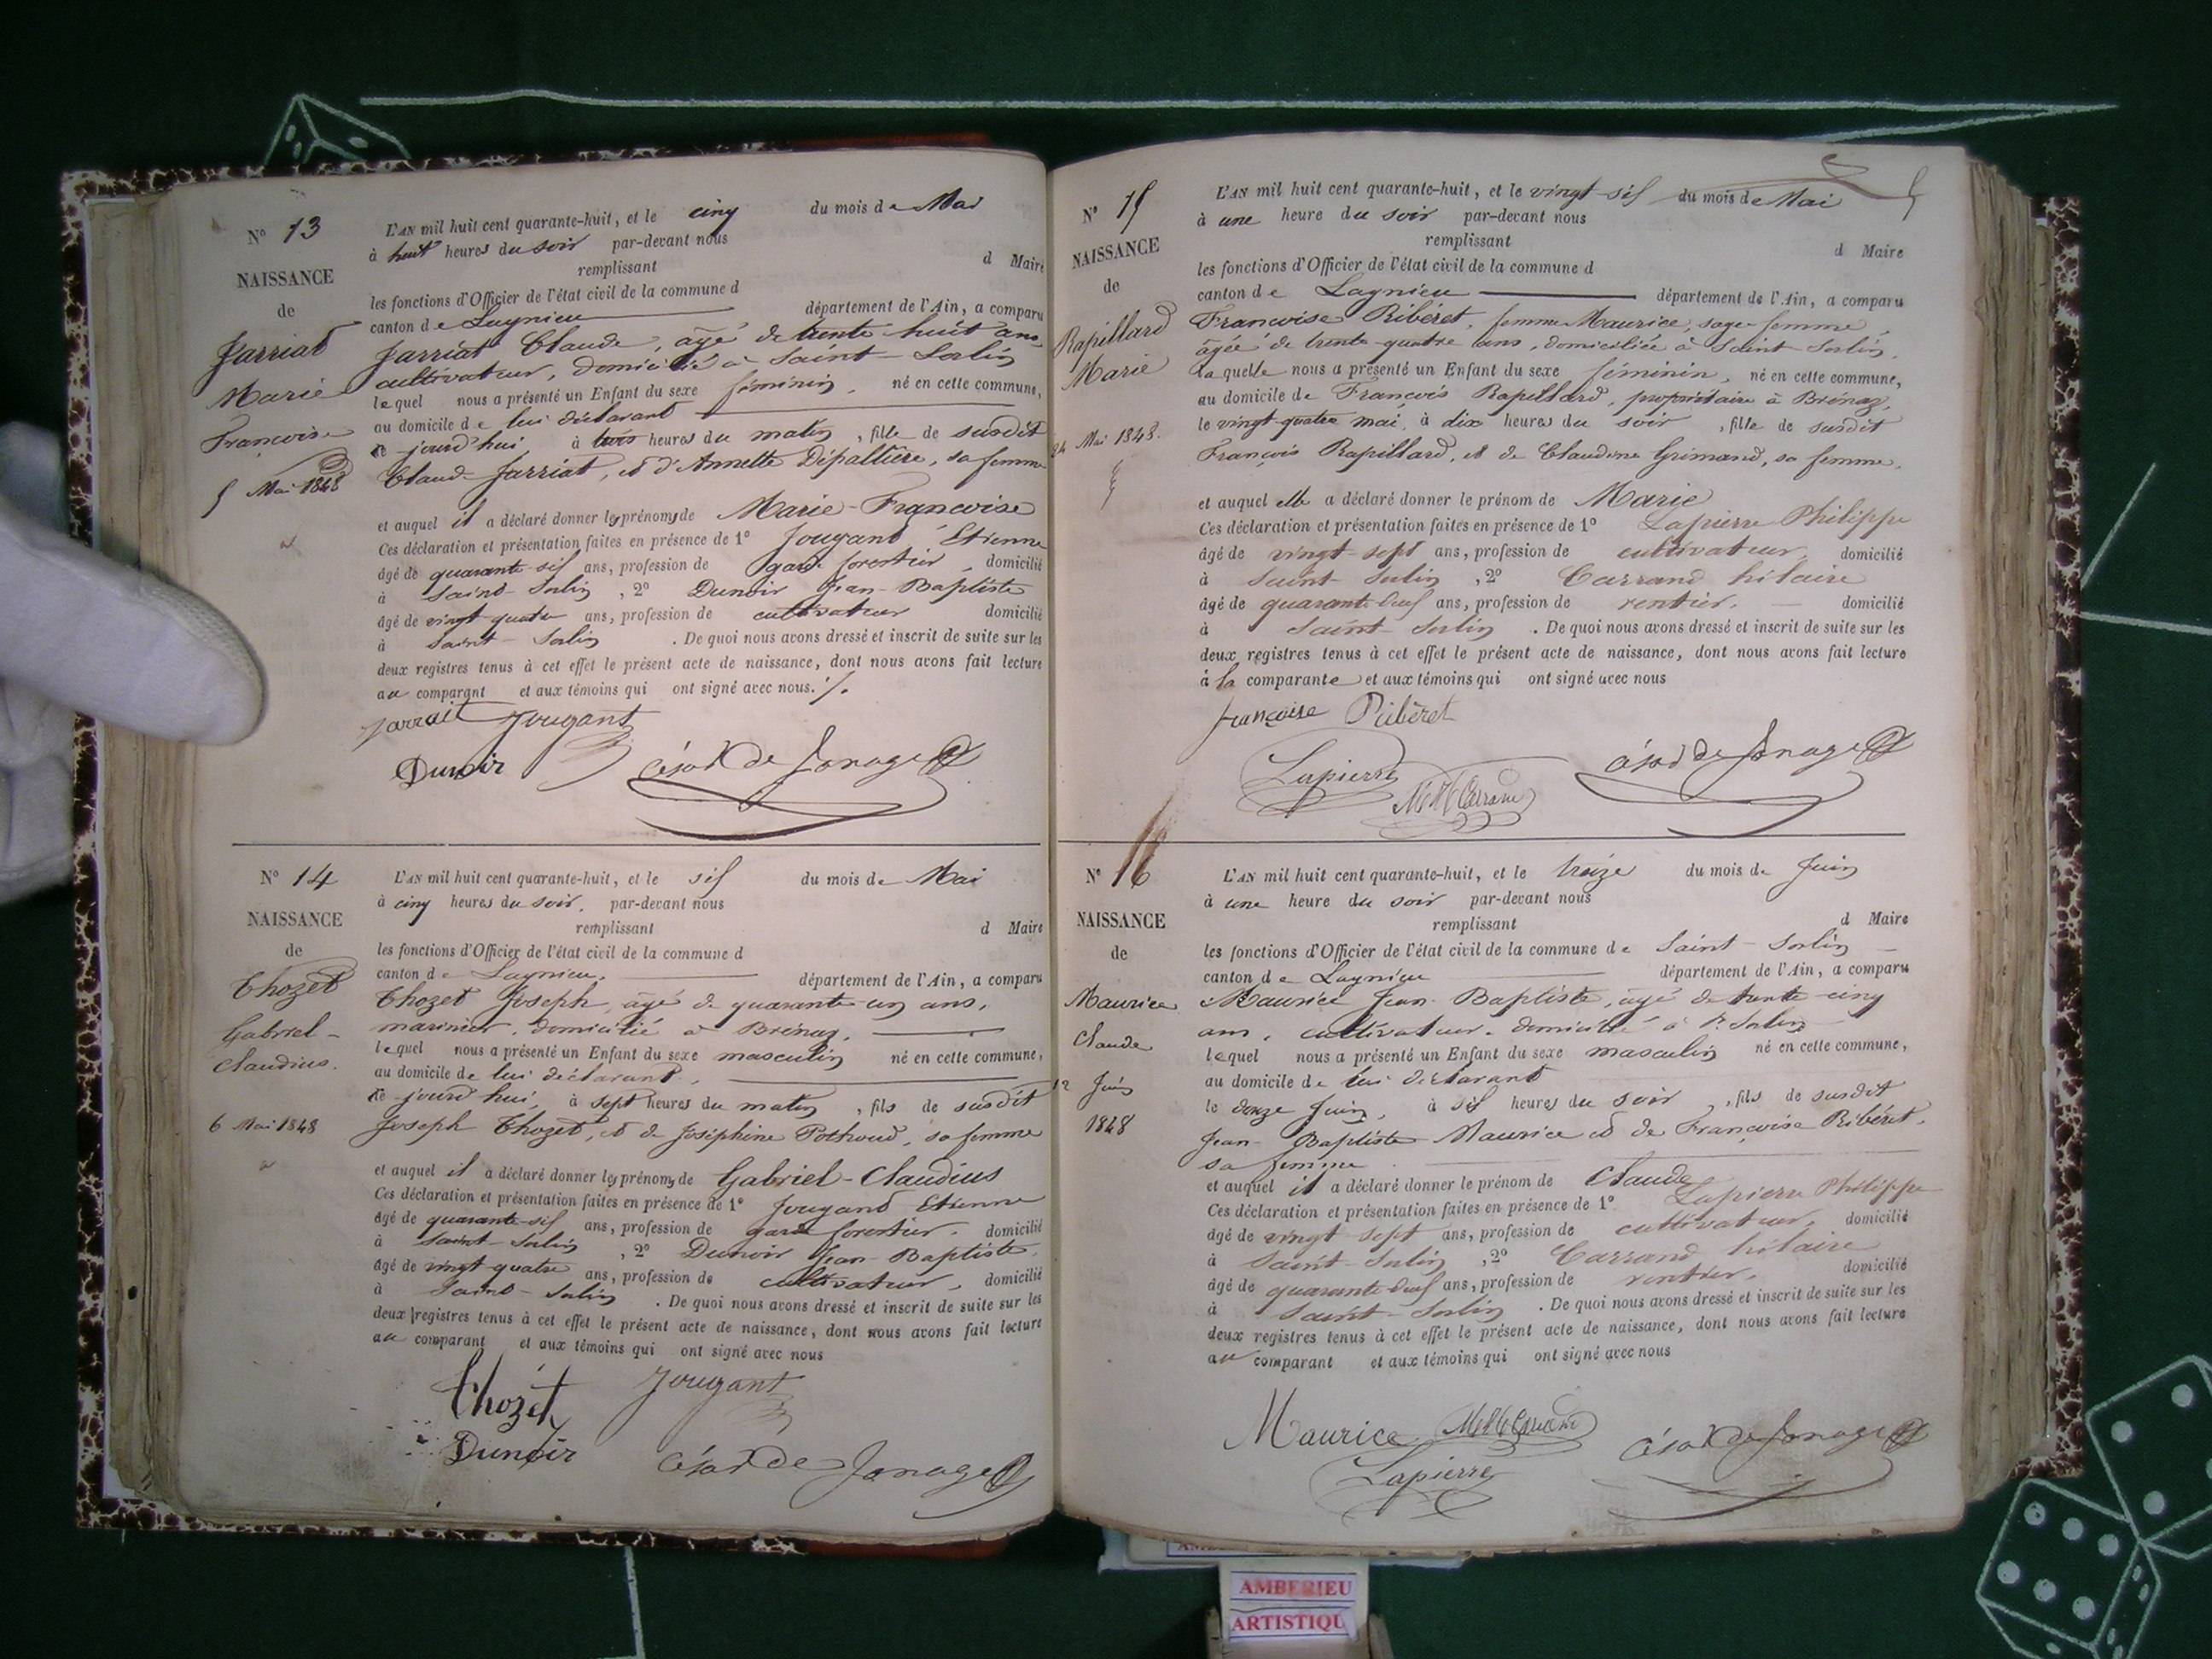 N° 13
NAISSANCE
de
Jarriat
Marie
Françoise
5 Mai 1848
L'AN mil huit cent quarante-huit, et le cinq du mois de Mai
à huit heures du soir par-devant nous
remplissant d Maire
les fonctions d'Officier de l'état civil de la commune d
canton de Lagnieu département de l'Ain, a comparu
Jarriat Claude, âgé de trente huit ans
cultivateur, domicilié à Saint-Sorlin
lequel nous a présenté un Enfant du sexe féminin, né en cette commune,
au domicile de lui déclarant
ce jourd'hui à trois heures du matin, fille de susdit
Claude Jarriat, et d'Annette Dépallière, sa femme
et auquel il a déclaré donner les prénoms de Marie-Françoise
Ces déclaration et présentation faites en présence de 1° Jougant Étienne
âgé de quarante-six ans, profession de garde forestier, domicilié
à Saint-Sorlin, 2° Dunoir Jean-Baptiste
âgé de vingt quatre ans, profession de cultivateur domicilié
à Saint-Sorlin. De quoi nous avons dressé et inscrit de suite sur les
deux registres tenus à cet effet le présent acte de naissance, dont nous avons fait lecture
au comparant et aux témoins qui ont signé avec nous./.
Jarrait Jougant
Dunoir César de Jonage
N° 14
NAISSANCE
de
Thozet
Gabriel-
Claudius.
6 Mai 1848
L'AN mil huit cent quarante-huit, et le six du mois de Mai
à cinq heures du soir, par-devant nous
remplissant d Maire
les fonctions d'Officier de l'état civil de la commune d
canton de Lagnieu. département de l'Ain, a comparu
Thozet Joseph, âgé de quarante-un ans,
marinier, domicilié à Brénaz,
lequel nous a présenté un Enfant du sexe masculin né en cette commune,
au domicile de lui déclarant,
ce jourd'hui, à sept heures du matin, fils de susdit
Joseph Thozet, et de Joséphine Pothoud, sa femme
et auquel il a déclaré donner les prénoms de Gabriel-Claudius
Ces déclaration et présentation faites en présence de 1° Jougand Etienne
âgé de quarante-six ans, profession de garde forestier, domicilié
à Saint-Sorlin, 2° Dunoir Jean-Baptiste,
âgé de vingt quatre ans, profession de cultivateur, domicilié
à Saint-Sorlin. De quoi nous avons dressé et inscrit de suite sur les
deux registres tenus à cet effet le présent acte de naissance, dont nous avons fait lecture
au comparant et aux témoins qui ont signé avec nous
Thozet Jougant
Dunoir César de Jonage
N° 15
NAISSANCE
de
Rapillard
Marie
24 Mai 1848.
L'AN mil huit cent quarante-huit, et le vingt-six du mois de Mai
à une heure du soir par-devant nous
remplissant d Maire
les fonctions d'Officier de l'état civil de la commune d
canton de Lagnieu département de l'Ain, a comparu
Françoise Ribéret, femme Maurice, sage-femme,
âgée de trente-quatre ans, domiciliée à Saint-Sorlin,
laquelle nous a présenté un Enfant du sexe féminin, né en cette commune,
au domicile de François Rapillard, propriétaire à Brénaz,
le vingt-quatre mai, à dix heures du soir, fille de susdit
François Rapillard, et de Claudine Grimand, sa femme,
et auquel elle a déclaré donner le prénom de Marie
Ces déclaration et présentation faites en présence de 1° Lapierre Philippe
âgé de vingt-sept ans, profession de cultivateur, domicilié
à Saint-Sorlin, 2° Carrand hilaire
âgé de quarante-neuf ans, profession de rentier. domicilié
à Saint-Sorlin. De quoi nous avons dressé et inscrit de suite sur les
deux registres tenus à cet effet le présent acte de naissance, dont nous avons fait lecture
à la comparante et aux témoins qui ont signé avec nous
françoise Ribéret
Lapierre Carrand César de Jonage
N° 16
NAISSANCE
de
Maurice
Claude
12 Juin
1848
L'AN mil huit cent quarante-huit, et le treize du mois de Juin
à une heure du soir par-devant nous
remplissant d Maire
les fonctions d'Officier de l'état civil de la commune de Saint-Sorlin
canton de Lagnieu département de l'Ain, a comparu
Maurice Jean-Baptiste, âgé de trente-cinq
ans, cultivateur, domicilié à St. Sorlin
lequel nous a présenté un Enfant du sexe masculin né en cette commune,
au domicile de lui déclarant
le douze Juin, à six heures du soir, fils de susdit
Jean-Baptiste Maurice et de Françoise Ribéret,
sa femme
et auquel il a déclaré donner le prénom de Claude
Ces déclaration et présentation faites en présence de 1° Lapierre Philippe
âgé de vingt sept ans, profession de cultivateur, domicilié
à Saint-Sorlin, 2° Carrand hilaire
âgé de quarante-neuf ans, profession de rentier. domicilié
à Saint-Sorlin. De quoi nous avons dressé et inscrit de suite sur les
deux registres tenus à cet effet le présent acte de naissance, dont nous avons fait lecture
au comparant et aux témoins qui ont signé avec nous
Maurice Carrand César de Jonage
Lapierre
AMBERIEU
ARTISTIQU